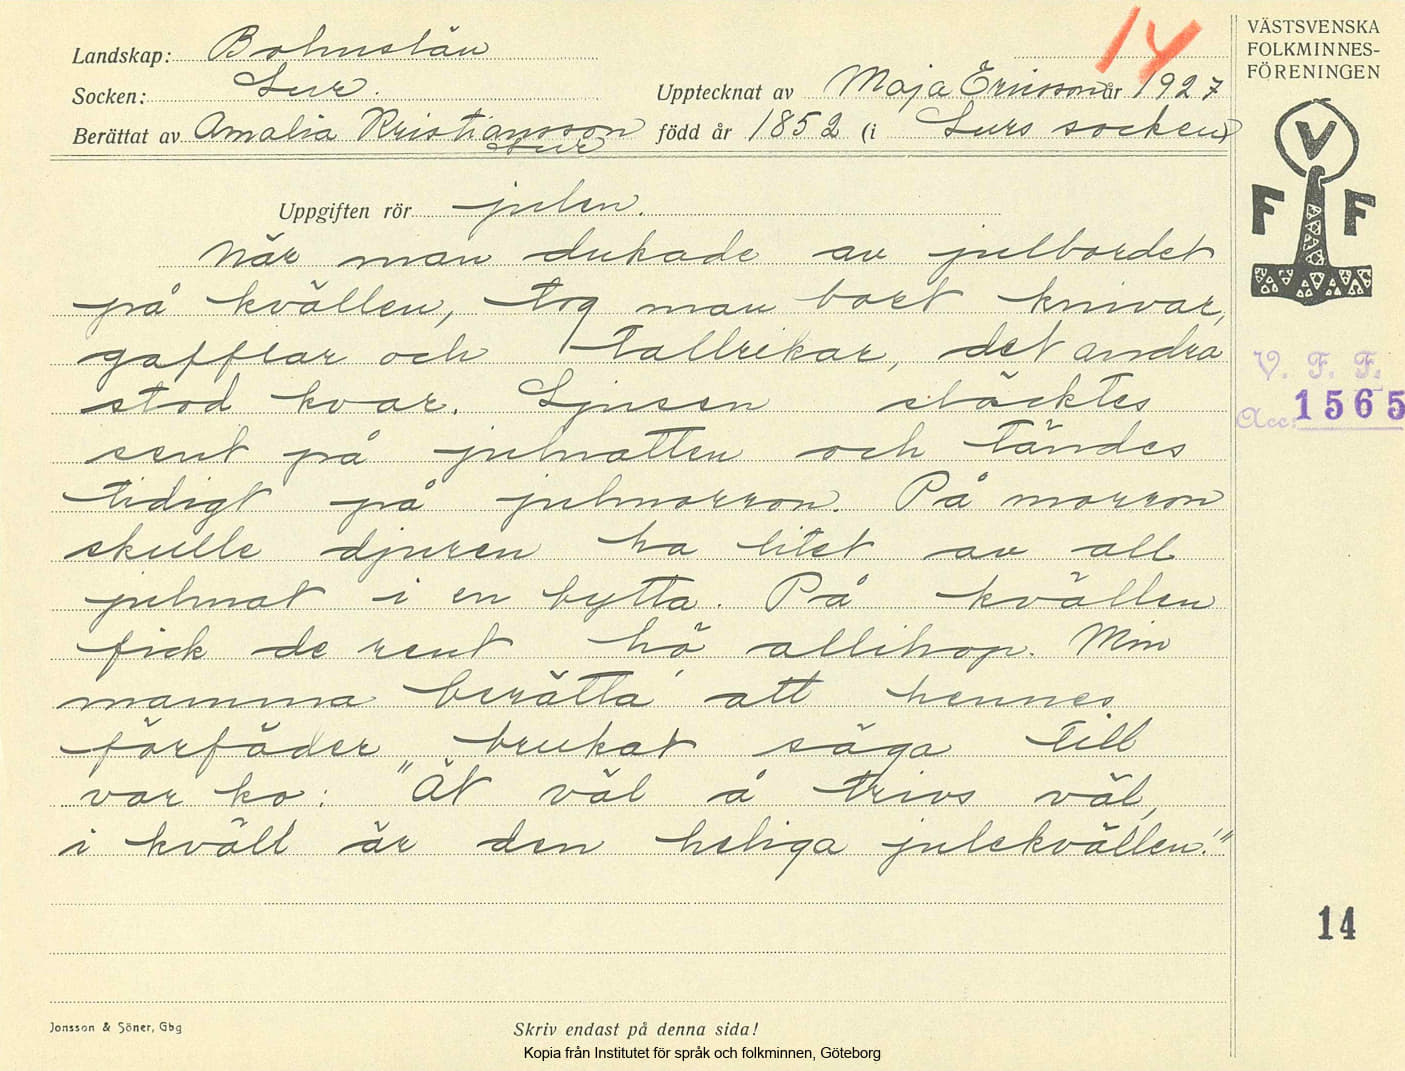 14
VÄSTSVENSKA
FOLKMINNES-
FÖRENINGEN
Landskap: Bohuslän
Socken: Lur.
Upptecknat av Maja Ericsson år 1927
Berättat av Amalia Kristiansson
Lur
född år 1852 (i Lurs socken)
V
F F
Uppgiften rör julen.
När man dukade av julbordet
på kvällen, tog man bort knivar,
gafflar och tallrikar, det andra
stod kvar. Ljusen släcktes
sent på julnatten och tändes
tidigt på julmorron. På morron
skulle djuren ha litet av all
julmat i en bytta. På kvällen
fick de rent hö allihop. Min
mamma berätta' att hennes
förfäder brukat säga till
var ko: "Ät väl å trivs väl,
i kväll är den heliga julekvällen!"
V. F. F.
Acc: 1565
14
Jonsson & Söner, Gbg
Skriv endast på denna sida!
Kopia från Institutet för språk och folkminnen, Göteborg